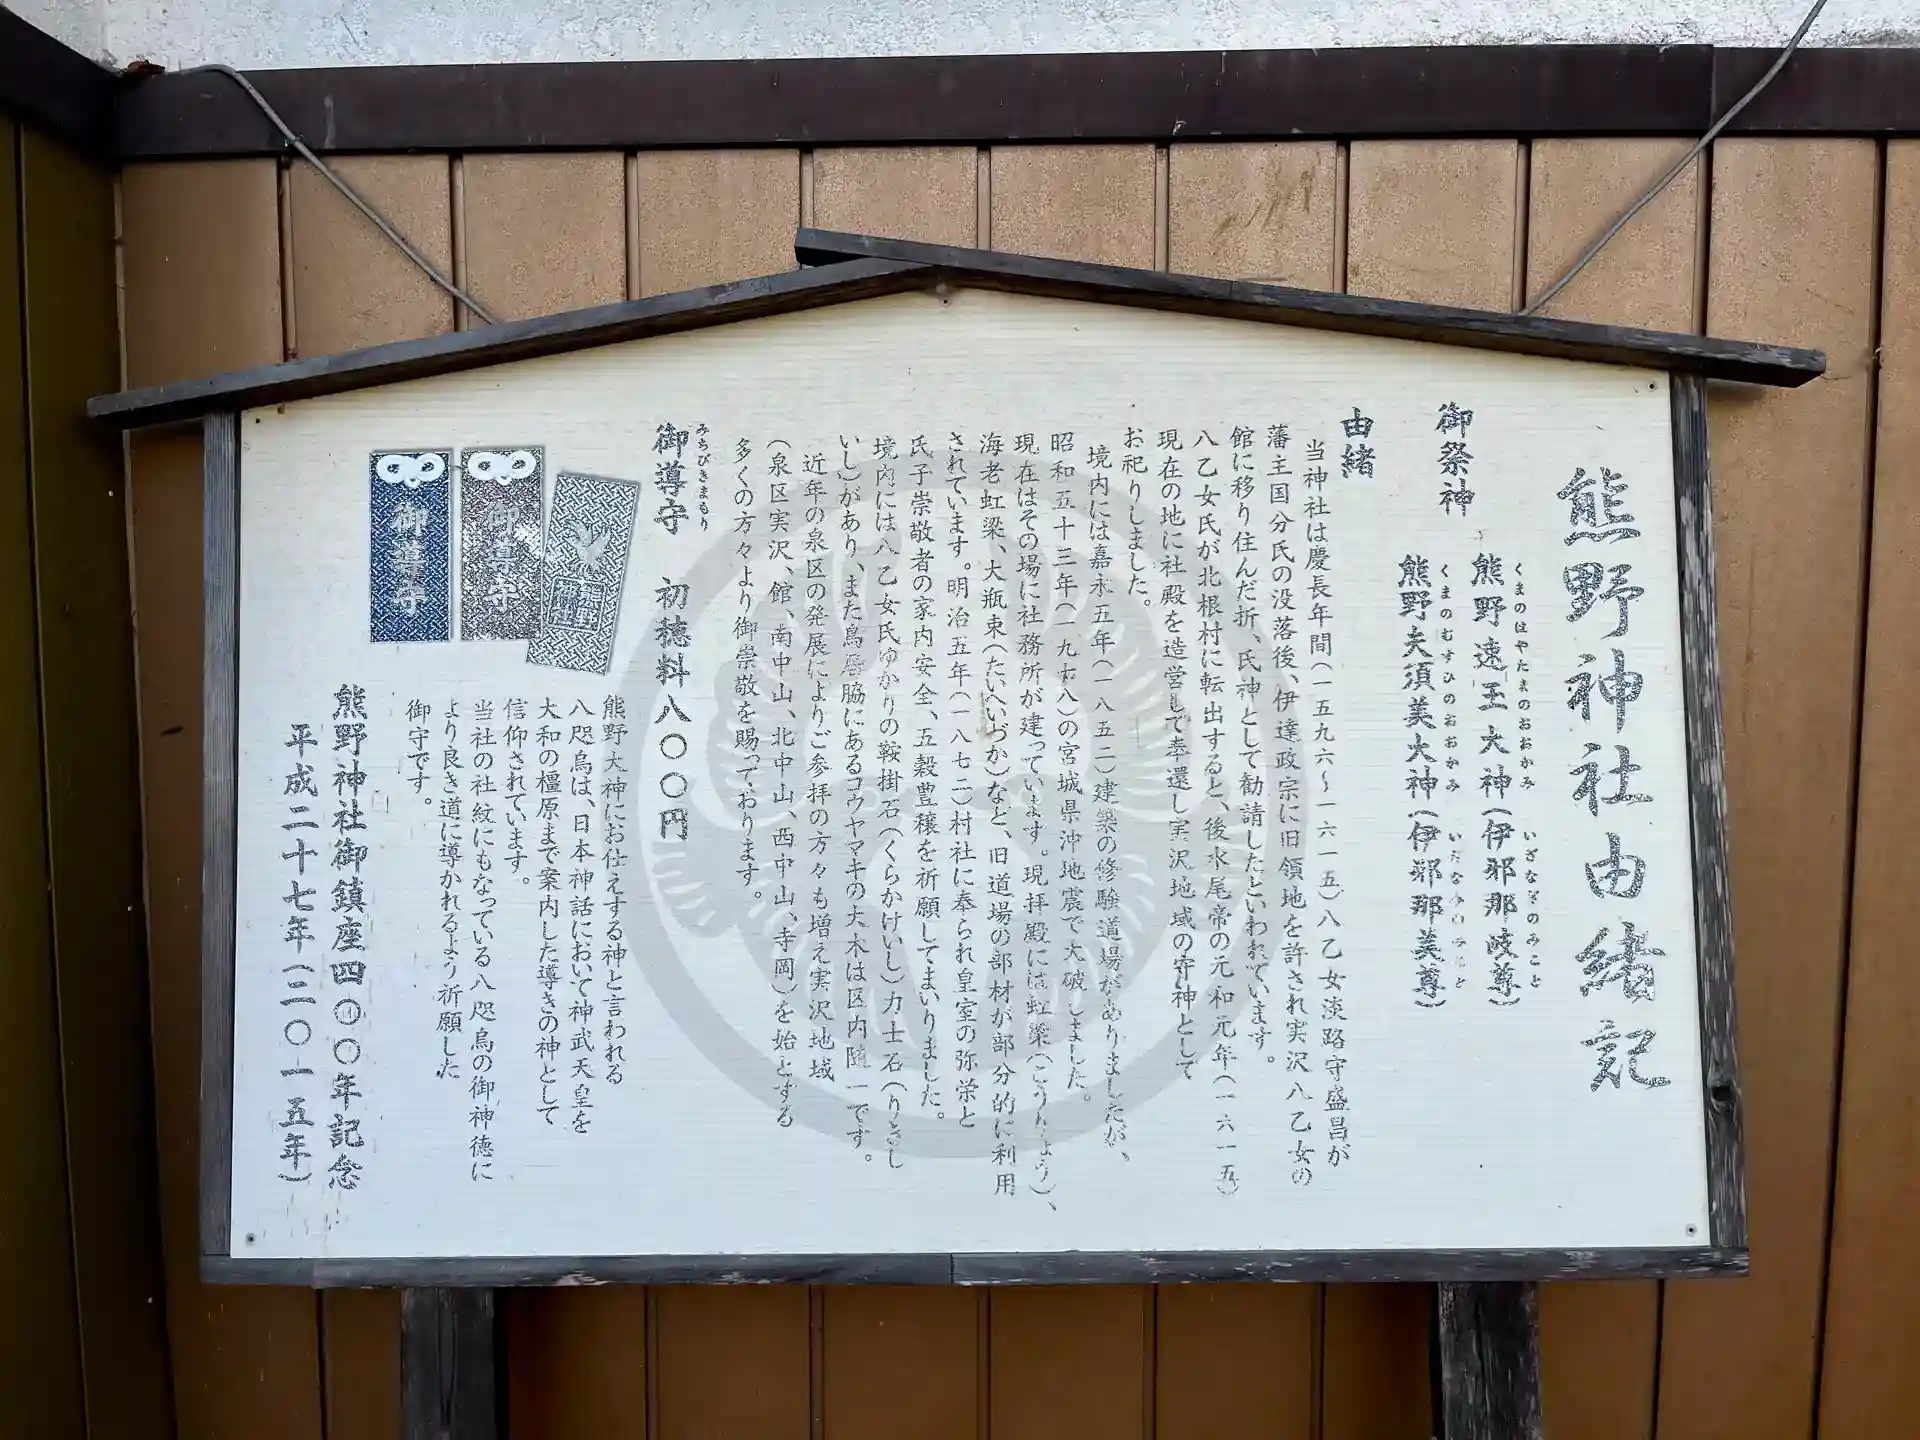 熊野神社由緒記
御祭神
くまのはやたまのおおかみ いざなぎのみこと
熊野速玉大神(伊邪那岐尊)
くまのむすひのおおかみ いざなみのみこと
熊野夫須美大神(伊邪那美尊)
由緒
当神社は慶長年間(一五九六~一六一五)八乙女淡路守盛昌が
藩主国分氏の没落後、伊達政宗に旧領地を許され実沢八乙女の
館に移り住んだ折、氏神として勧請したといわれています。
八乙女氏が北根村に転出すると、後水尾帝の元和元年(一六一五)
現在の地に社殿を造営して奉還し実沢地域の守り神として
お祀りしました。
境内には嘉永五年(一八五二)建築の修験道場がありましたが、
昭和五十三年(一九七八)の宮城県沖地震で大破しました。
現在はその場に社務所が建っています。現拝殿には虹梁(こうりょう)、
海老虹梁、大瓶束(たいへいづか)など、旧道場の部材が部分的に利用
されています。明治五年(一八七二)村社に奉られ皇室の弥栄と
氏子崇敬者の家内安全、五穀豊穣を祈願してまいりました。
境内には八乙女氏ゆかりの鞍掛石(くらかけいし)力士石(りきし
いし)があり、また鳥居脇にあるコウヤマキの大木は区内随一です。
近年の泉区の発展によりご参拝の方々も増え実沢地域
(泉区実沢、館、南中山、北中山、西中山、寺岡)を始とする
多くの方々より御崇敬を賜っております。
みちびきまもり
御導守 初穂料八〇〇円
熊野神社
御導守
御導守
熊野大神にお仕えする神と言われる
八咫烏は、日本神話において神武天皇を
大和の橿原まで案内した導きの神として
信仰されています。
当社の社紋にもなっている八咫烏の御神徳に
より良き道に導かれるよう祈願した
御守です。
熊野神社御鎮座四〇〇年記念
平成二十七年(二〇一五年)